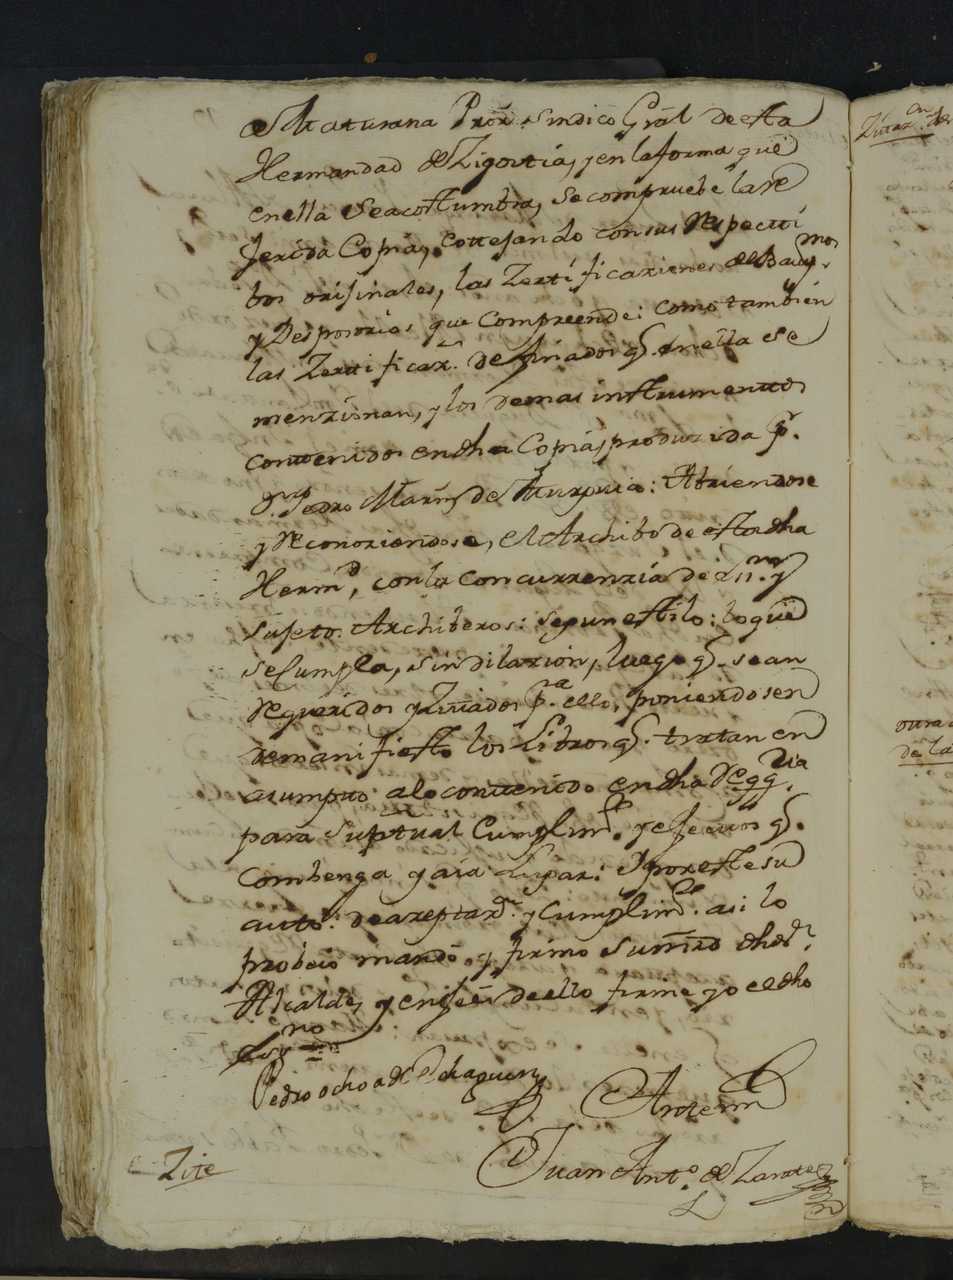 de Maturana Pror. sindico Gral de esta
Hermandad de Zigoytia, y en la forma que
en ella se acostumbra, se compruebe la re
ferida Copia, cottejando con sus respectti
bos orijinales, las Zerttificaziones de Baupmos.
y Desposorios que Compreende: como tambien
las Zerttificazs. de finados q. en ella se
menzionan, y los demas instrumenttos
conttenidos en dha Copia, produzida pr.
Dn. Pedro Martin de : Abriendose
y reconoziendose, el Archibo de esta dha
Hermd, con la Concurrenzia de
sujetos Archiberos: segun estilo: lo que
se Cumpla, sin dilazion, luego q. sean
requeridos y Zittados pa. ello, poniendosen
de manifiesto los Libros q. tratan en
asumptto a lo conttenido en dha
para su puntual Cumplimto. y efecttos q.
combenga y aia Lugar: I por este su
autto: de azeptazn. y Cumplimto. asi lo
probeio mando, y firmo su mrd dho Sr.
Alcalde, y en fee de ello firme yo el dho
Essno
Pedro ochoa de Echaguen
Antemi
Juan Antto. de Zarate
Zite
Zittazn
ottra
de la